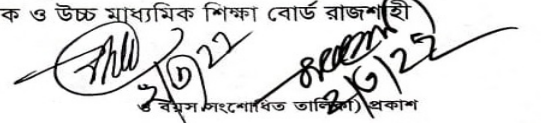 ক ও উচ্চ মাধ্যমিক শিক্ষা বোর্ড রাজশাহী
২/৩/২২ ২/৩/২২
ও বয়স সংশোধিত তালিকা) প্রকাশ